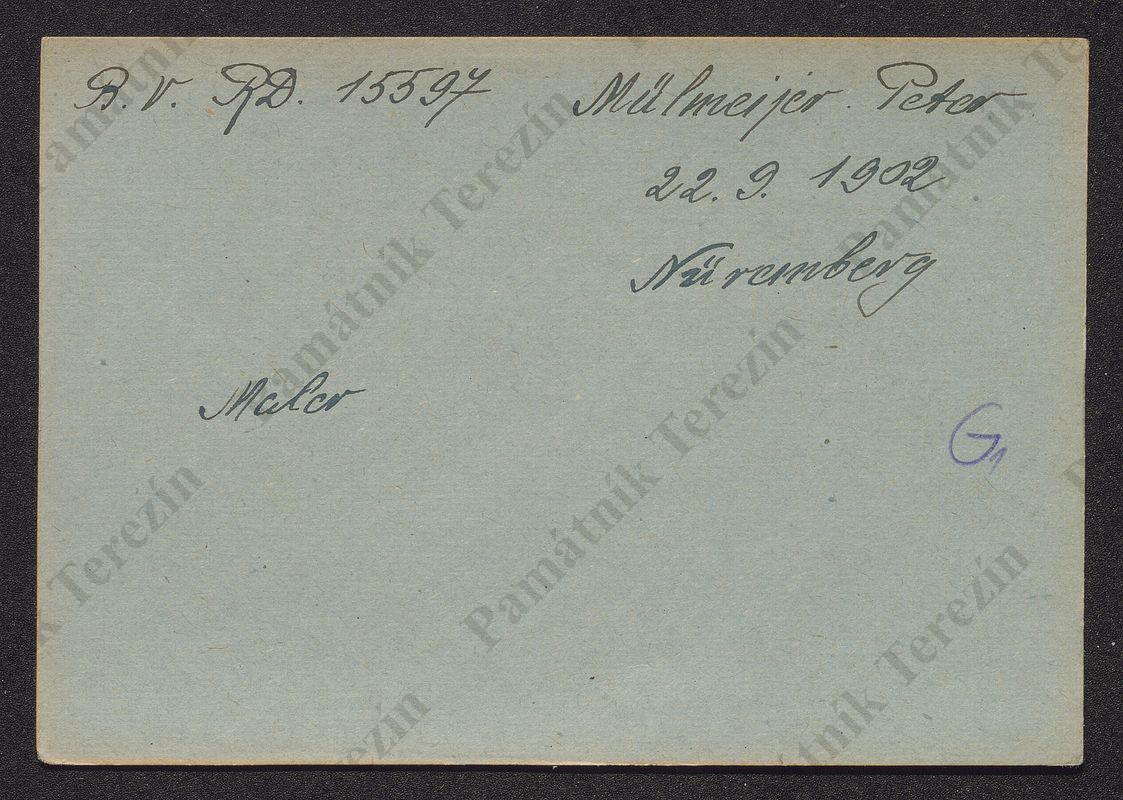 R. v. RD. 15597 Mülmeijer Peter
22. 9. 1902
Nüremberg
Maler
G1
Památník Terezín
Památník Terezín
Památník Terezín
Památník Terezín
Památník Terezín
Památník Terezín